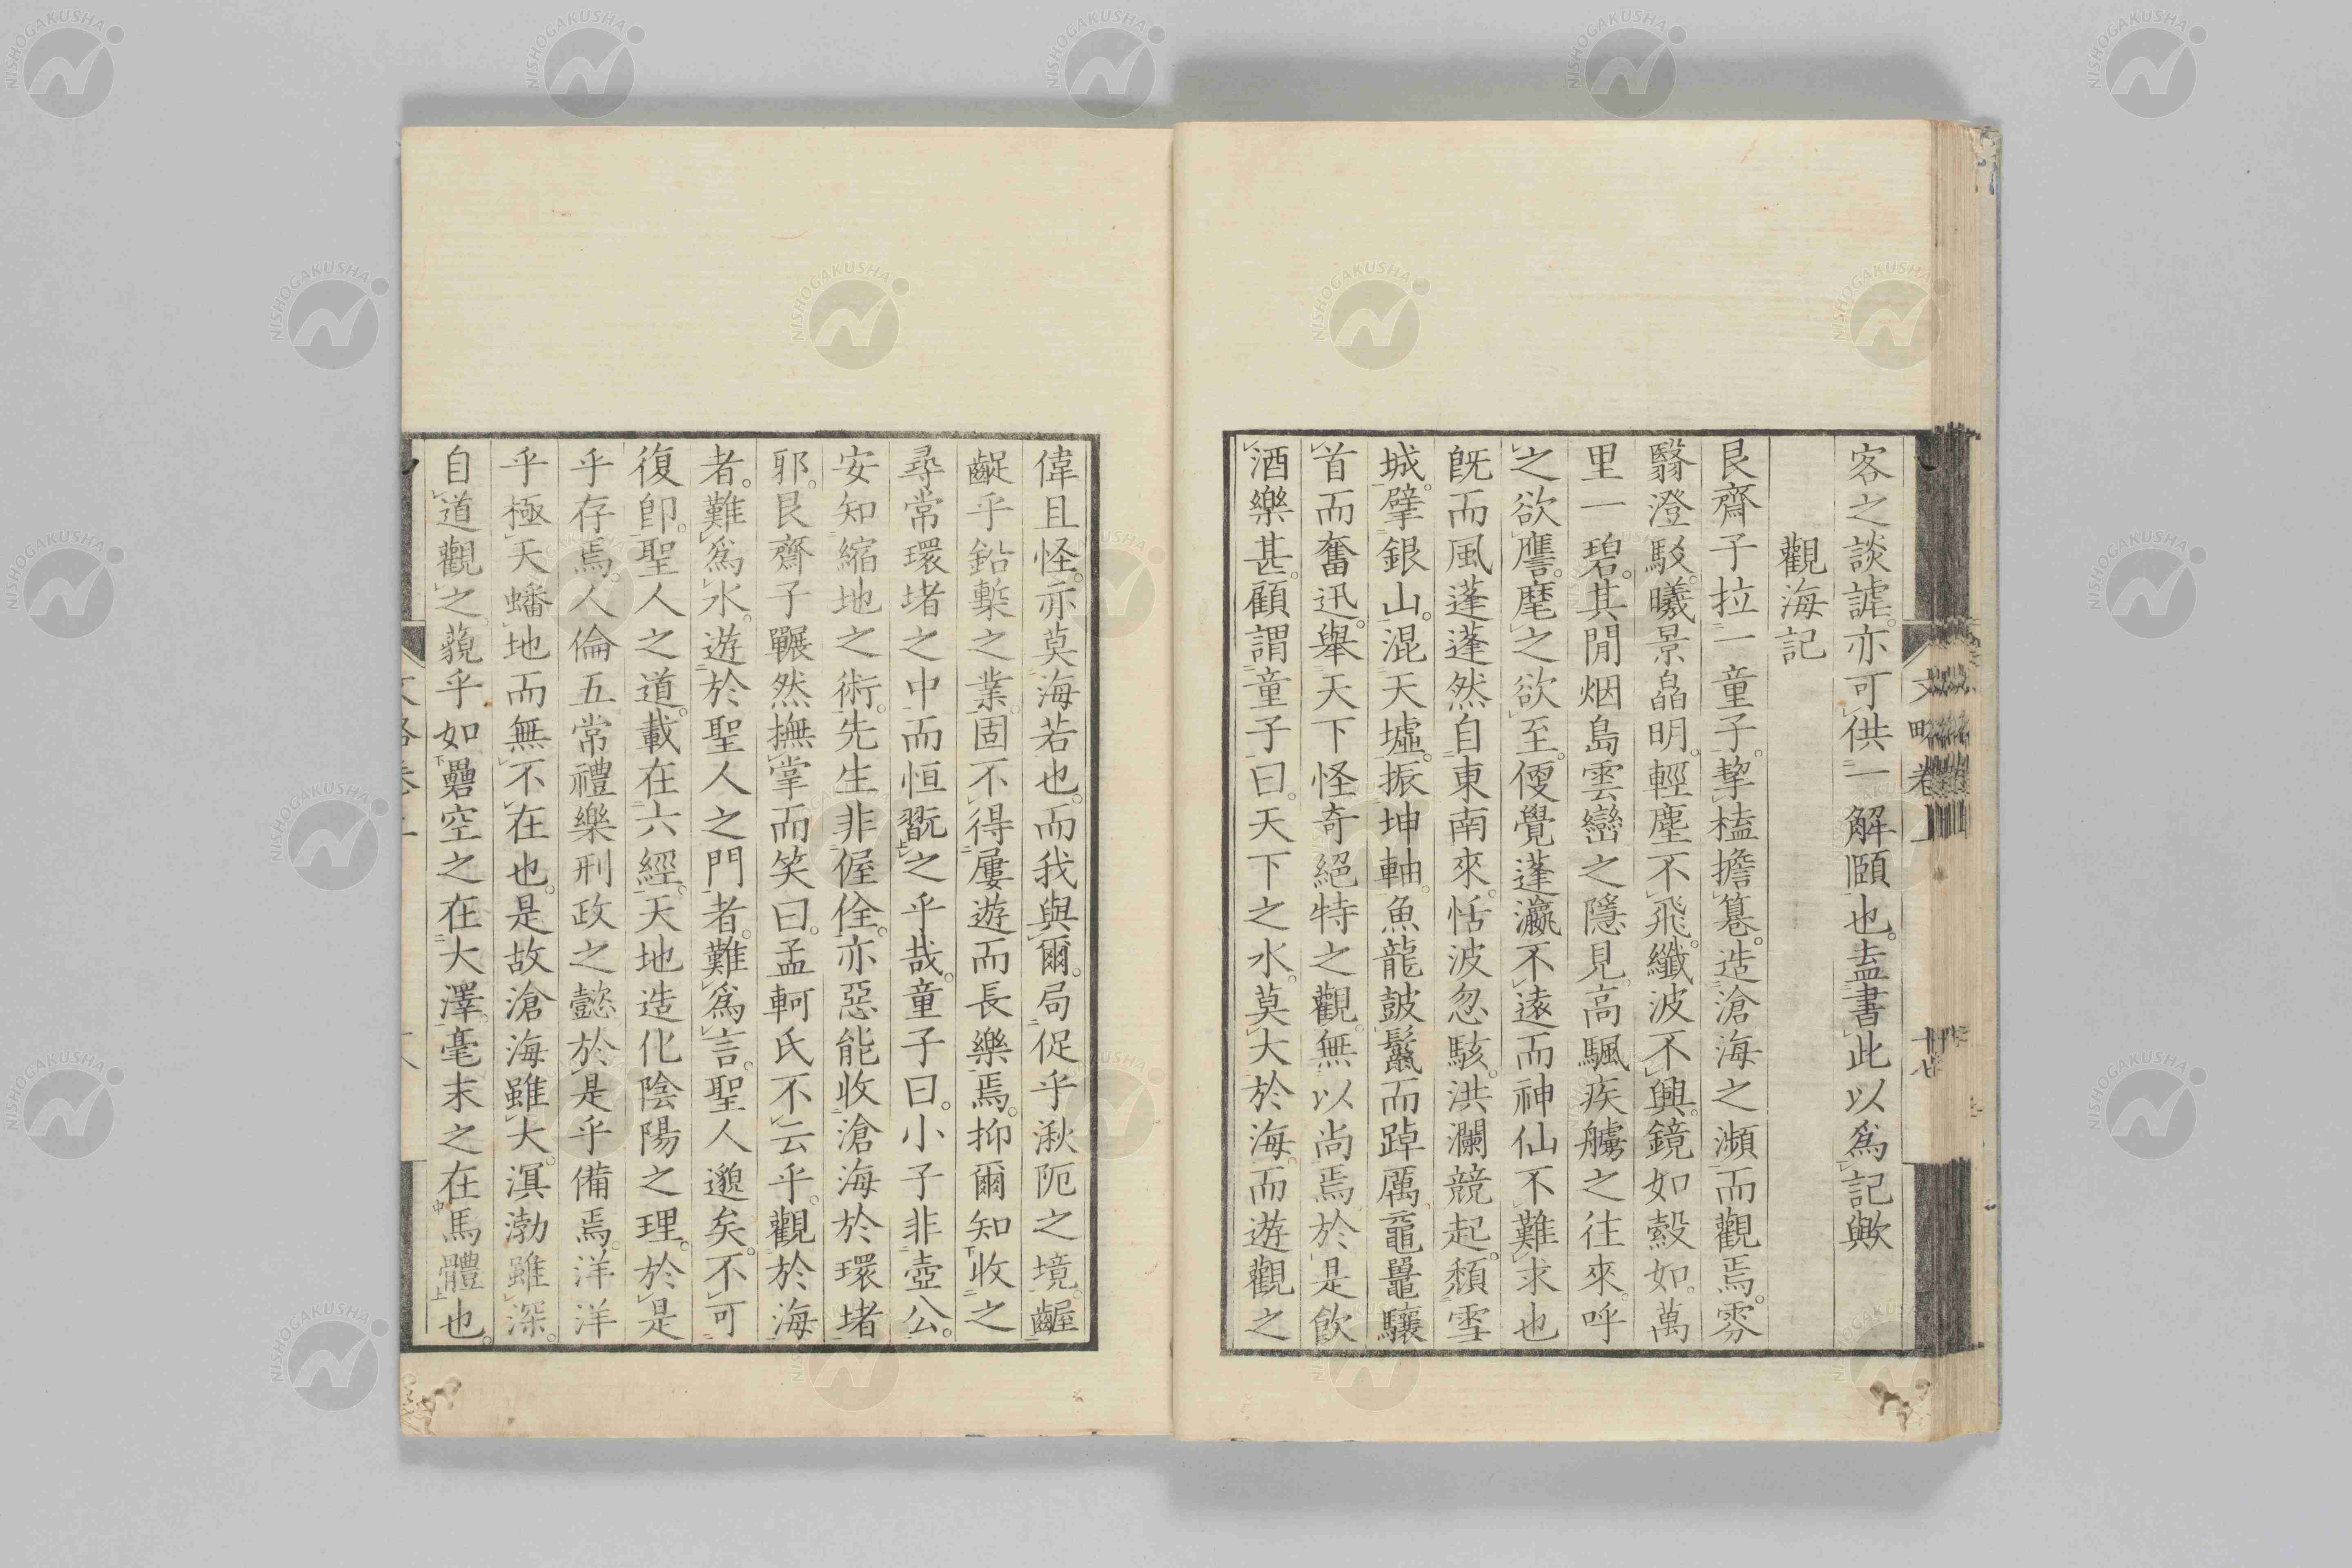 客之談謔。亦可供一解頤也。盍書此以爲記歟
觀海記
艮齋子拉一童子。挈榼擔簋。造滄海之瀕而觀焉。雰
翳澄駁。曦景皛明。輕塵不飛。纖波不興。鏡如縠如。萬
里一碧。其閒烟島雲巒之隱見。高颿疾艣之往來。呼
之欲譍。麾之欲至。便覺蓬瀛不遠而神仙不難求也
旣而風蓬蓬然自東南來。恬波忽駭。洪瀾競起。頹雪
城。擘銀山。混天墟。振坤軸。魚龍皷鬣而踔厲。黿鼉驤
首而奮迅。舉天下怪奇絕特之觀。無以尚焉。於是飮
酒樂甚。顧謂童子曰。天下之水。莫大於海。而遊觀之
偉且怪。亦莫海若也。而我與爾。局促乎湫阨之境。齷
齪乎鉛槧之業。固不得屢遊而長樂焉。抑爾知收之
尋常環堵之中而恒翫之乎哉。童子曰。小子非壺公。
安知縮地之術。先生非偓佺。亦惡能收滄海於環堵
邪。艮齋子囅然撫掌而笑曰。孟軻氏不云乎。觀於海
者。難爲水。遊於聖人之門者。難爲言。聖人邈矣。不可
復卽。聖人之道。載在六經。天地造化陰陽之理。於是
乎存焉。人倫五常禮樂刑政之懿於是乎備焉。洋洋
乎極天蟠地而無不在也。是故滄海雖大。溟渤雖深。
自道觀之。藐乎如礨空之在大澤。毫末之在馬體也。
文略卷上
廿七
NISHOGAKUSHA